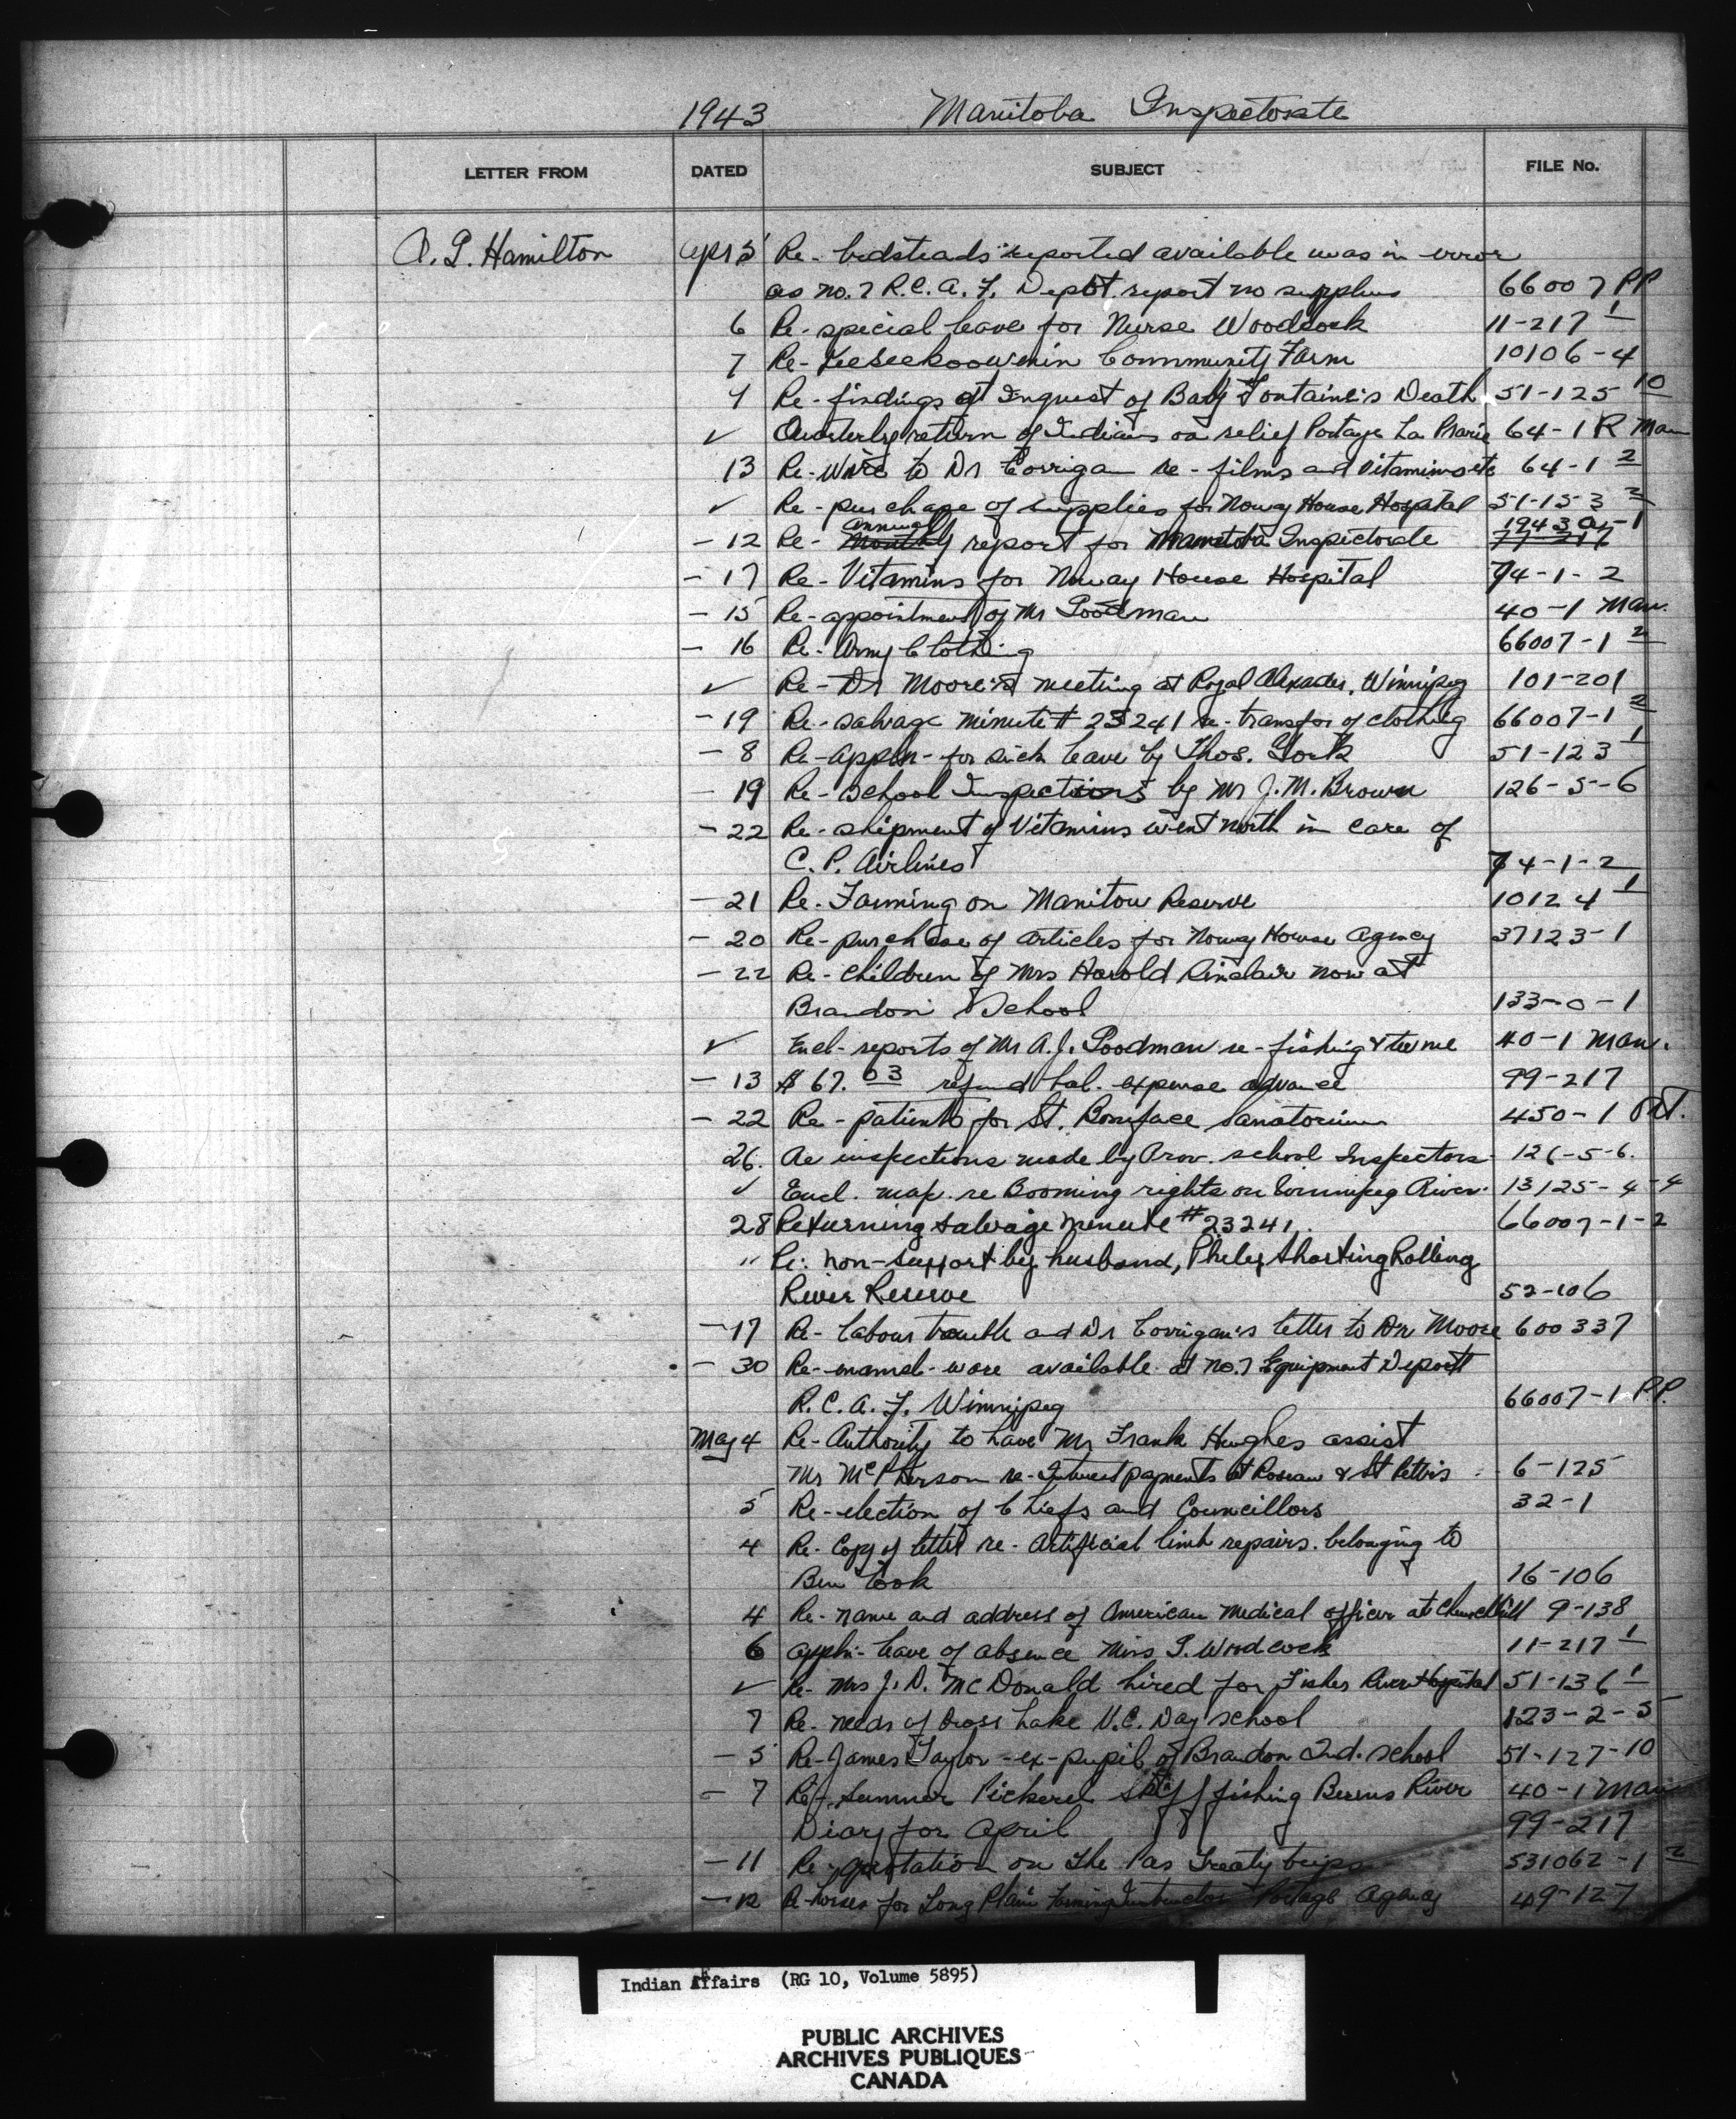 1943 Manitoba Inspectorate
LETTER FROM DATED SUBJECT FILE No.
A. G. Hamilton Apr 5 Re- bedsteads reported available was in error
as no. 7 R.C.A.F. Depot report no surplus 66007 PP
6 Re- special leave for Nurse Woodcock 11-217 1
7 Re- Keeseekoowenin Community Farm 10106-4
Re- findings at Inquest of Baby Fontaine's Death 51-125 10
✓ Quarterly return of Indians on relief Portage La Prarie 64-1 R Man
13 Re- Wire to Dr Corrigan re- films and Vitamins etc 64-1 2
✓ Re- purchase of supplies for Noway House Hospital 51-153 2
annual 1943 -1
- 12 Re- Monthly report for Manitoba Inspectorate
- 17 Re- Vitamins for Noway House Hospital 74-1-2
- 15 Re- appointment of Mr Goodman 40-1 Man.
- 16 Re- Army Clothing 66007-1 2
✓ Re- Dr Moore's meeting at Royal Alexader, Winnipeg 101-201
- 19 Re- salvage minute # 23241 re- transfor of clothing 66007-1 2
- 8 Re- appln- for sick leave by Thos. 51-123 1
- 19 Re- School Inspections by Mr J. M. Brown 126-5-6
- 22 Re- shipment of Vitamins went north in care of
C. P. Airlines 74-1-2
- 21 Re- Farming on Manitou Reserve 10124 1
- 20 Re- purchase of articles for Noway House Agency 37123-1
- 22 Re- children of Mrs Harold Sinclair now at
Brandon School 133-0-1
✓ Encl- reports of Mr A. J. Goodman re- fishing & 40-1 Man.
- 13 $ 67.03 refund bal. expense advance 99-217
- 22 Re- patients for St. Boniface Sanatorium 450-1
26. Re inspections made by Prov. school Inspectors 126-5-6.
✓ Encl. map. re Booming rights on Winnipeg River. 13125-4-4
28 Returning salvage minute #23241. 66007-1-2
" Re: non-support by husband, Philip Shorting Rolling
River Reserve 52-106
- 17 Re- labour trouble and Dr Corrigan's letter to Dr Moore 600337
- 30 Re- enamel-ware available at No. 7 Equipment Depott
R.C.A.F. Winnipeg 66007-1 P.P.
May 4 Re- Authority to have Mr Frank Hughes assist
Mr McPherson re- Interest payments at Roseau & St 6-125
5 Re- election of Chiefs and Councillors 32-1
4 Re- Copy of letter re- Artificial limb repairs. belonging to
Ben Cook 16-106
4 Re- name and address of American Medical officer at Churchill 9-138
6 appln- leave of absence Miss G. Woodcock 11-217 1
✓ Re- Mrs J. D. McDonald hired for Fisher River Hospital 51-136 1
7 Re- needs of Cross Lake U.C. Day school 123-2-5
- 5 Re- James Taylor -ex-pupil of Brandon Ind. School 51-127-10
- 7 Re- Summer Pickerel fishing Berens River 40-1 Man
Diary for April 99-217
- 11 Re- quotation on The Pas Treaty trips 531062-1 2
- 12 Re- horses for Long Plain Farming Instructor Portage Agency 49-127
Indian Affairs (RG 10, Volume 5895)
PUBLIC ARCHIVES
ARCHIVES PUBLIQUES
CANADA